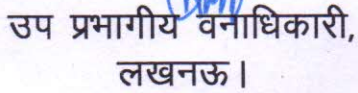 उप प्रभागीय वनाधिकारी,
लखनऊ।